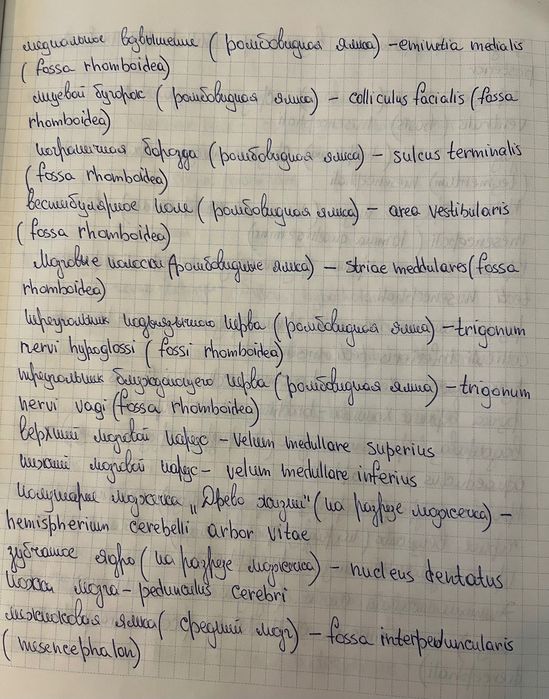 медиальное возвышение (ромбовидная ямка) – eminetia medialis
(fossa rhomboidea)
лицевой бугорок (ромбовидная ямка) – colliculus facialis (fossa
rhomboidea)
пограничная борозда (ромбовидная ямка) – sulcus terminalis
(fossa rhomboidea)
вестибулярное поле (ромбовидная ямка) – area vestibularis
(fossa rhomboidea)
Мозговые полоски (ромбовидные ямка) – striae meddulares (fossa
rhomboidea)
треугольник подъязычного нерва (ромбовидная ямка) – trigonum
nervi hypoglossi (fossi rhomboidea)
треугольник блуждающего нерва (ромбовидная ямка) – trigonum
nervi vagi (fossa rhomboidea)
верхний мозговой парус – velum medullare superius
нижний мозговой парус – velum medullare inferius
полушарие мозжечка „Древо жизни" (на разрезе мозжечка) –
hemispherium cerebelli arbor vitae
зубчатое ядро (на разрезе мозжечка) – nucleus dentatus
Ножки мозга – pedunculus cerebri
межножковая ямка (средний мозг) – fossa interpeduncularis
(mesencephalon)